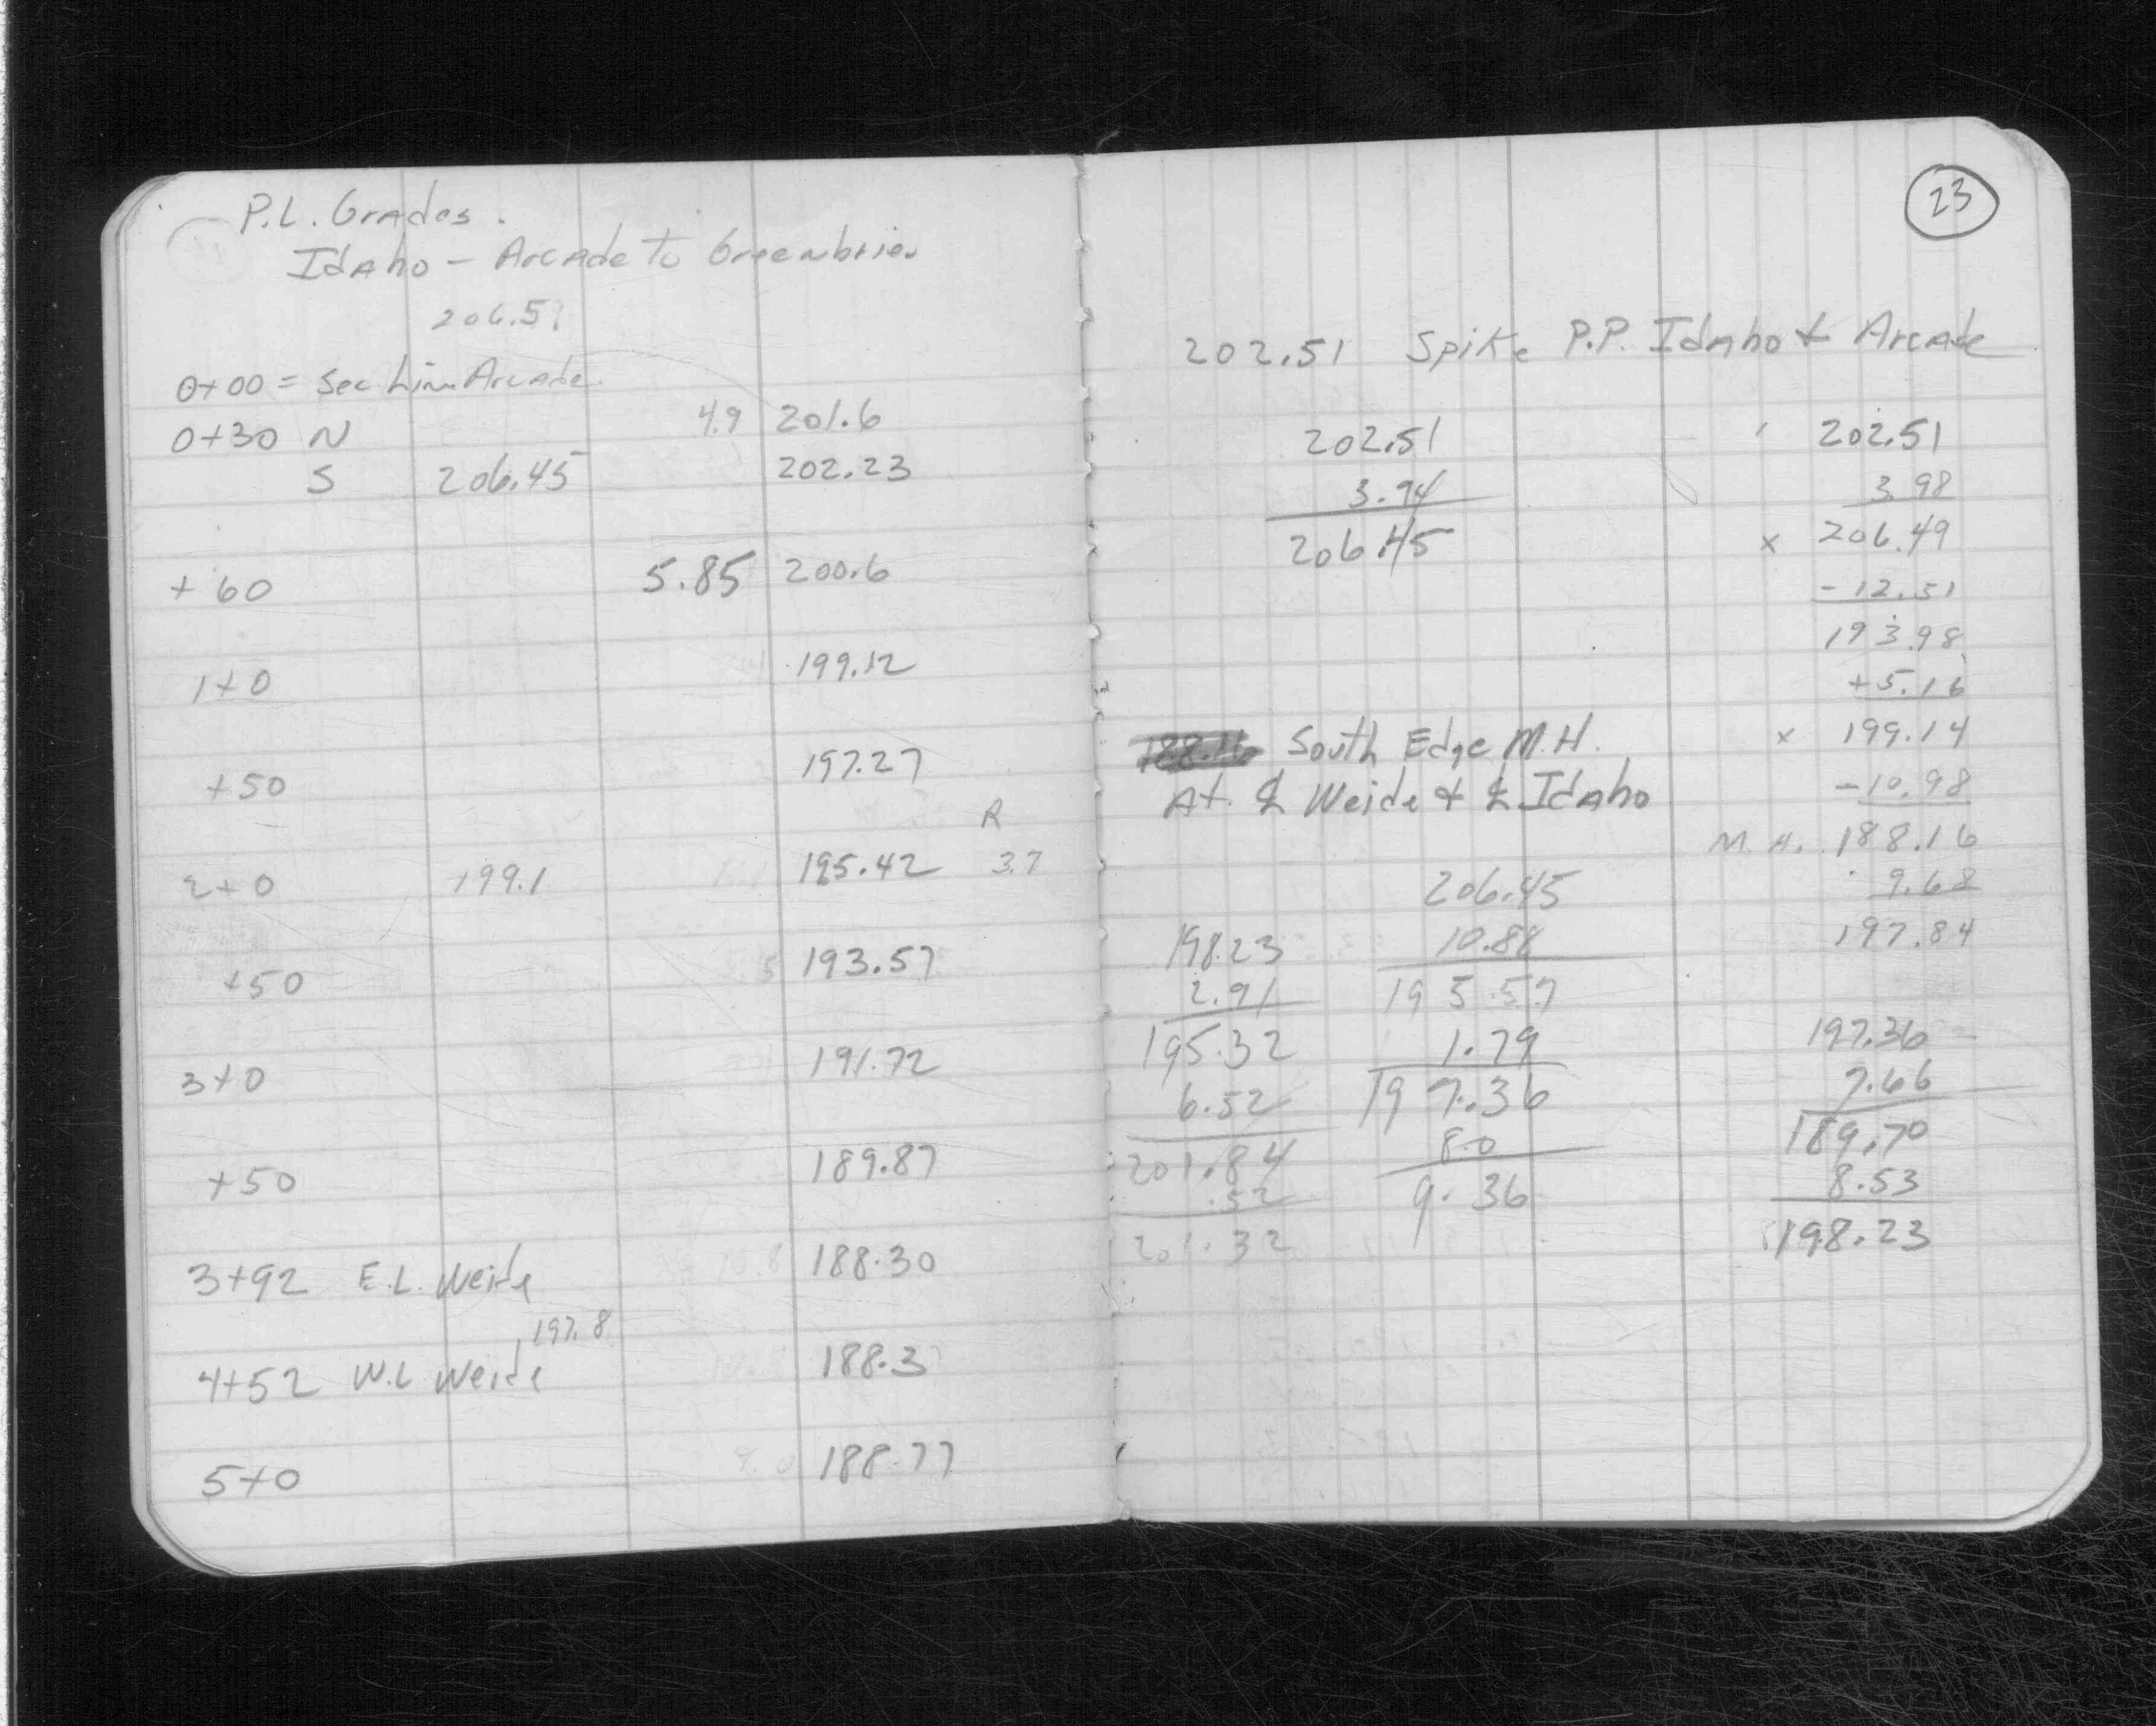 P.L. Grades.
Idaho - Arcade to Greenbrier
206.51
0+00 = Sec Line Arcade
0+30 N 4.9 201.6
S 206.45 202.23
+60 5.85 200.6
1+0 199.12
+50 197.27
R
2+0 199.1 195.42 3.7
+50 193.57
3+0 191.72
+50 189.87
3+92 E.L. Weide 10.8 188.30
197.8
4+52 W.L Weide 188.3
5+0 9.0 188.77
23
202.51 Spike P.P. Idaho & Arcade
202.51
3.94
206.45
202.51
3.98
x 206.49
-12.51
193.98
+5.16
x 199.14
-10.98
M.H. 188.16
9.68
197.84
188.16 South Edge M.H.
At. ℄ Weide & ℄ Idaho
206.45
10.88
195.57
1.79
197.36
8.0
9.36
198.23
2.91
195.32
6.52
201.84
.52
201.32
197.36
7.66
189.70
8.53
198.23